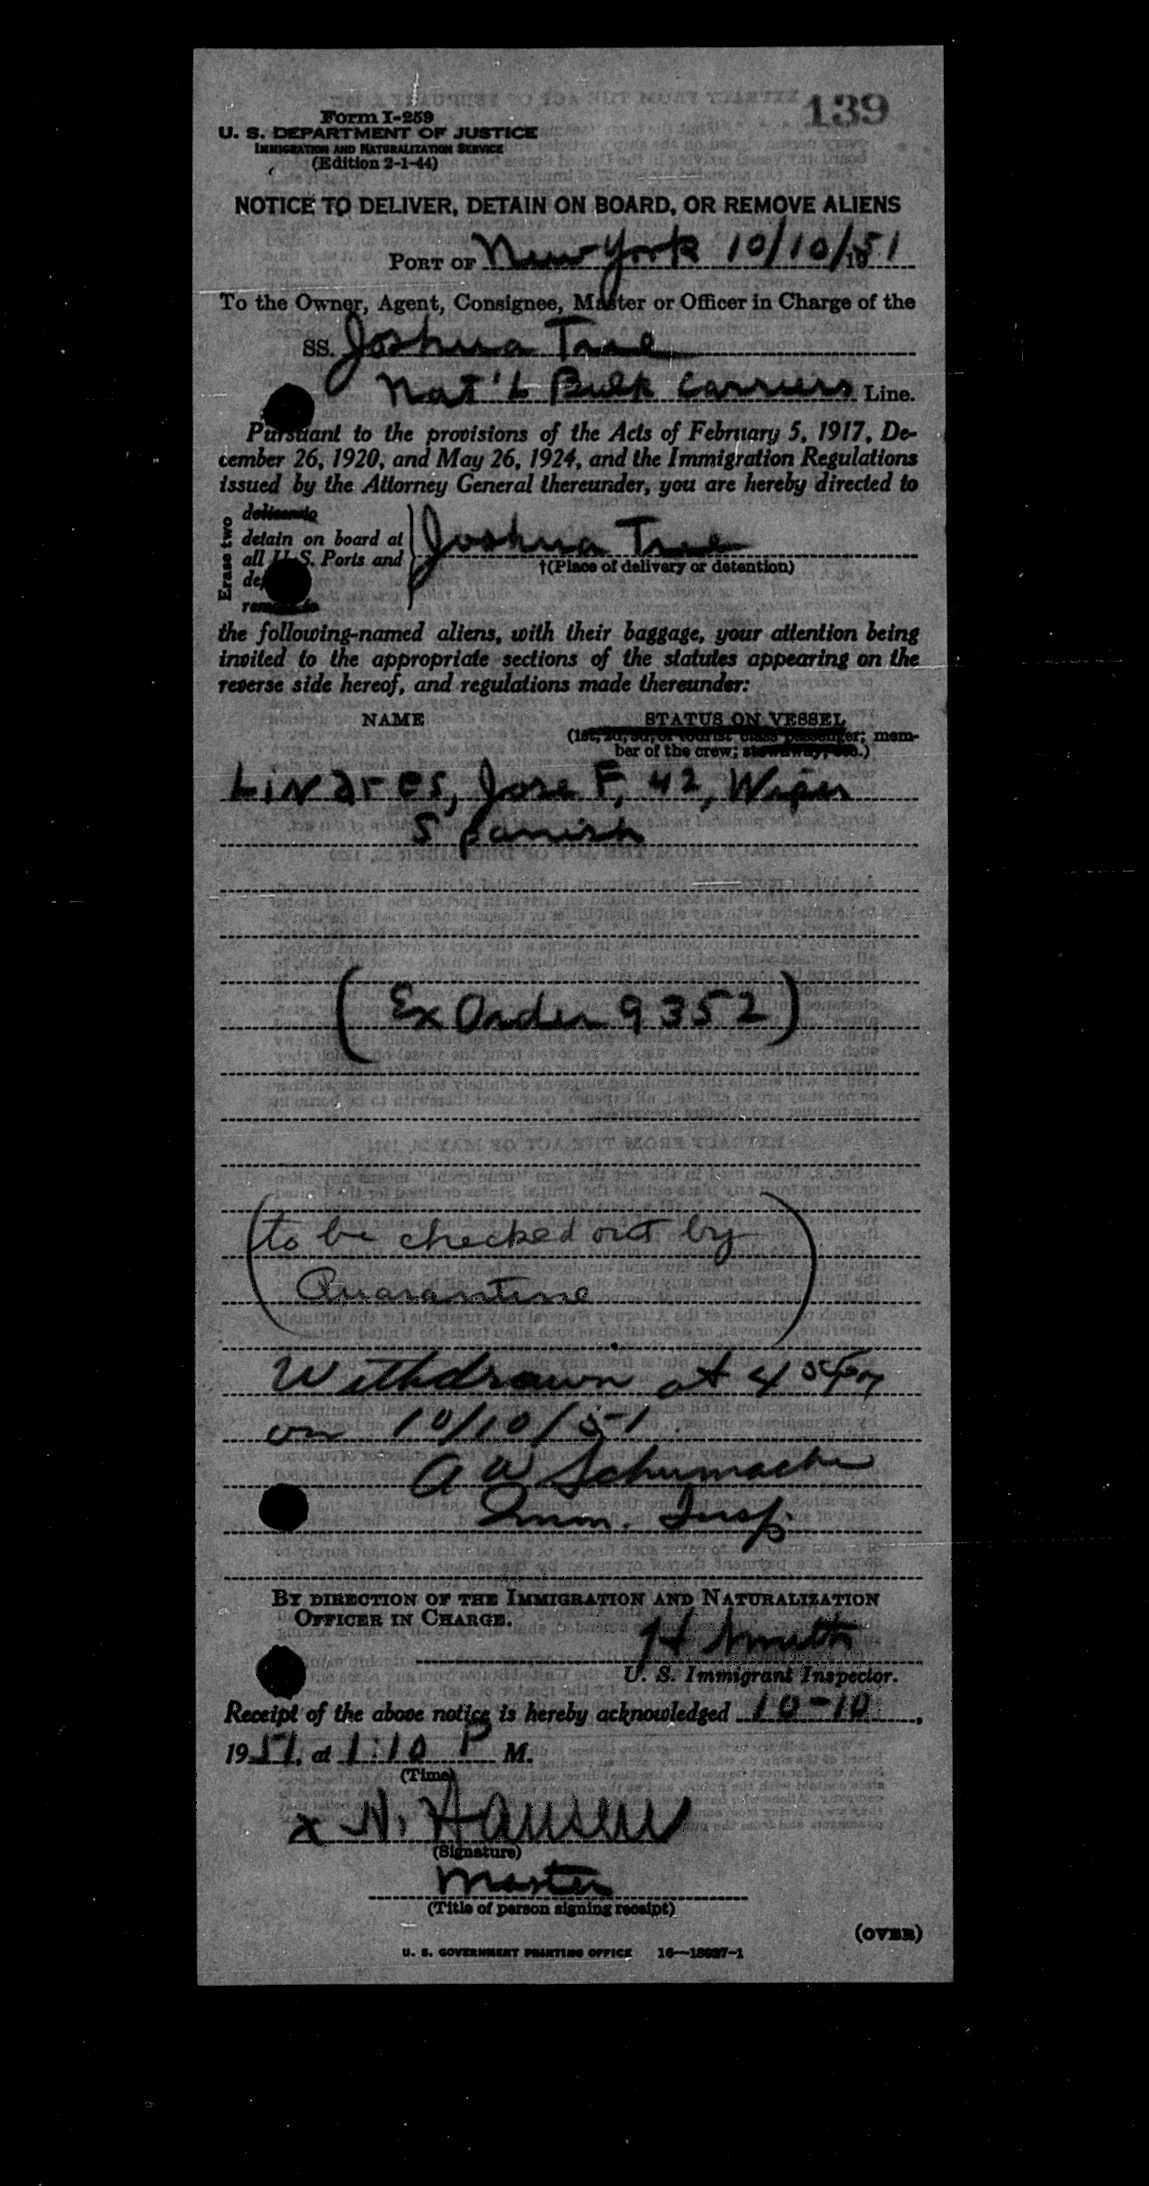 139
Form I-259
U. S. DEPARTMENT OF JUSTICE
IMMIGRATION AND NATURALIZATION SERVICE
(Edition 2-1-44)
NOTICE TO DELIVER, DETAIN ON BOARD, OR REMOVE ALIENS
PORT OF New York 10/10/1951
To the Owner, Agent, Consignee, Master or Officer in Charge of the
SS. Joshua Tree
Nat'l Bulk Carriers Line.
Pursuant to the provisions of the Acts of February 5, 1917, De-
cember 26, 1920, and May 26, 1924, and the Immigration Regulations
issued by the Attorney General thereunder, you are hereby directed to
Erase two
detain on board at
all U. S. Ports and
Joshua Tree
†(Place of delivery or detention)
the following-named aliens, with their baggage, your attention being
invited to the appropriate sections of the statutes appearing on the
reverse side hereof, and regulations made thereunder:
NAME STATUS ON VESSEL
(1st, 2d, 3d, or tourist class passenger; mem-
ber of the crew; stowaway, etc.)
Linares, Jose F, 42, Wiper
Spanish
(Ex Order 9352)
(to be checked out by
Quarantine)
Withdrawn at 4
on 10/10/51
A W Schumacher
Imm. Insp.
BY DIRECTION OF THE IMMIGRATION AND NATURALIZATION
OFFICER IN CHARGE.
H
U. S. Immigrant Inspector.
Receipt of the above notice is hereby acknowledged 10-10,
1951, at 1:10 P M.
(Time)
x N. Hansen
(Signature)
Master
(Title of person signing receipt)
(OVER)
U. S. GOVERNMENT PRINTING OFFICE 16—18027-1